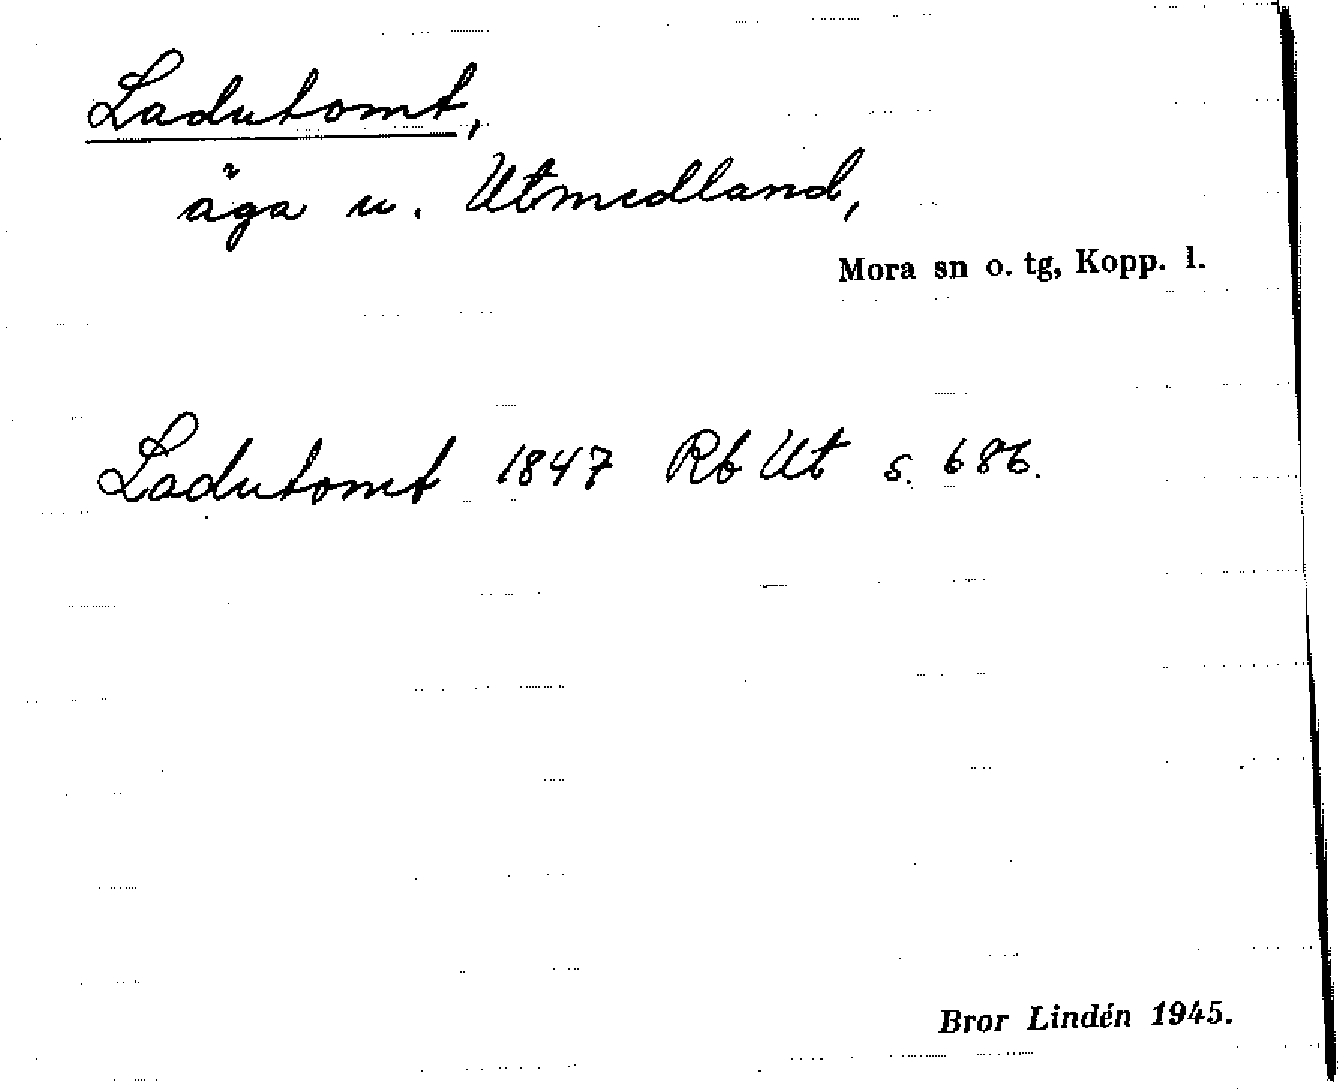 Ladutomt,
äga u. Utmedland,
Mora sn o. tg, Kopp. l.
Ladutomt 1847 Rb Ut s. 686.
Bror Lindén 1945.